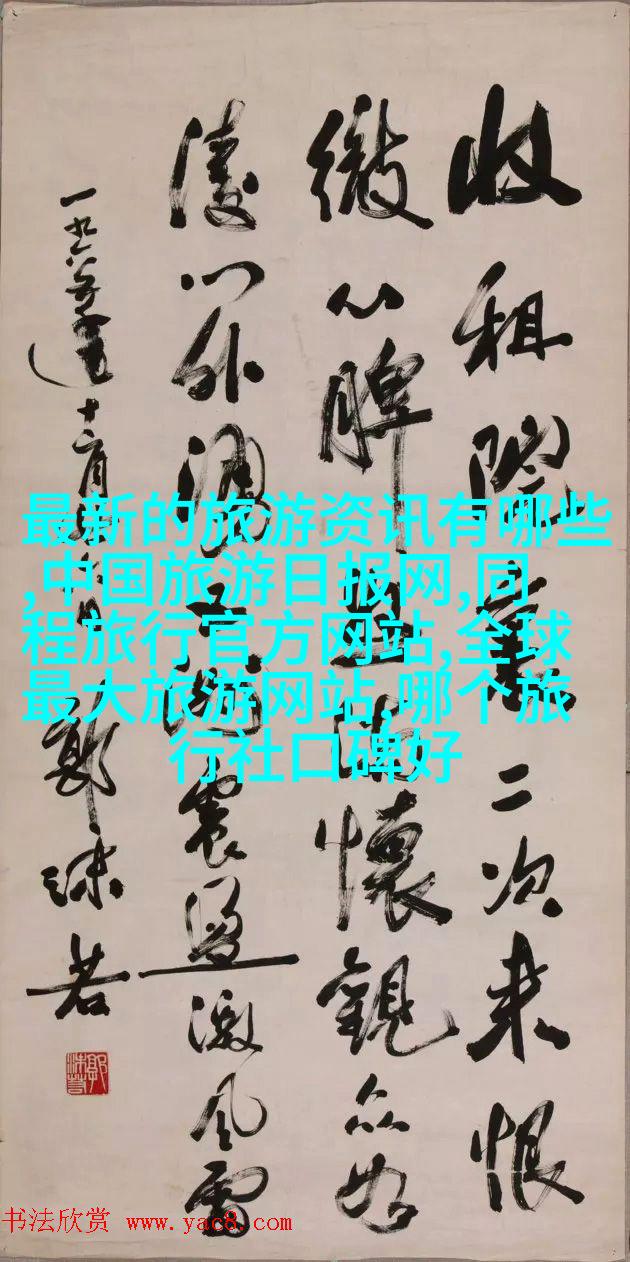 收租院 二次来恨
徹心脾 懷觀众如
濤门外 震 激风雷
一九六 十二月 日
郭沫若
最新的旅游资讯有哪些
,中国旅游日报网,同
程旅行官方网站,全球
最大旅游网站,哪个旅
行社口碑好
书法欣赏 www.yac8.com